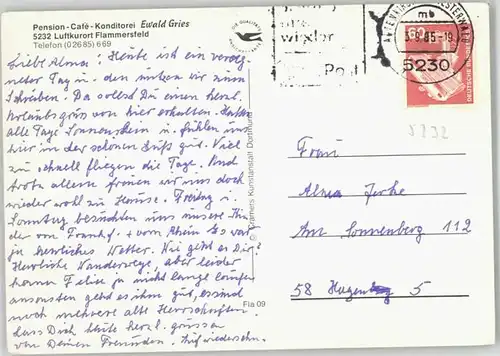 Pension-Café-Konditorei Ewald Gries
5232 Luftkurort Flammersfeld
Telefon (02685) 669
Liebe Alma! Heute ist ein
Tag u. den nutzen wir zum
Schreiben. Da sollst Du einen herzl.
Urlaubsgruss von hier erhalten. Hatten
alle Tage Sonnenschein u. fühlen uns
hier in der schönen Luft gut. Viel
zu schnell fliegen die Tage. Und
trotz allem freuen wir uns doch
wieder wohl zu Hause. Freitag u.
Sonntag besuchten uns unsere Kin-
der von Frankf. + vom Rhein. Es war
ja herrliches Wetter. Wie geht es Dir?
Herrliche Wanderwege, aber leider
kann Felix ja nicht lange laufen
ansonsten geht es ihm gut, es sind
noch mehrere alte Herrschaften.
Lass Dich heute herzl. grüssen
von Deinen Freunden. Aufwiedersehn.
Kunstanstalt Dortmund
Fla 09
wixler
Post
WESTERWALD
mb
-9.85-19
5230
DEUTSCHE BUNDESPOST
5232
Frau
Alma
Am Sonnenberg 112
58 Hagen 5